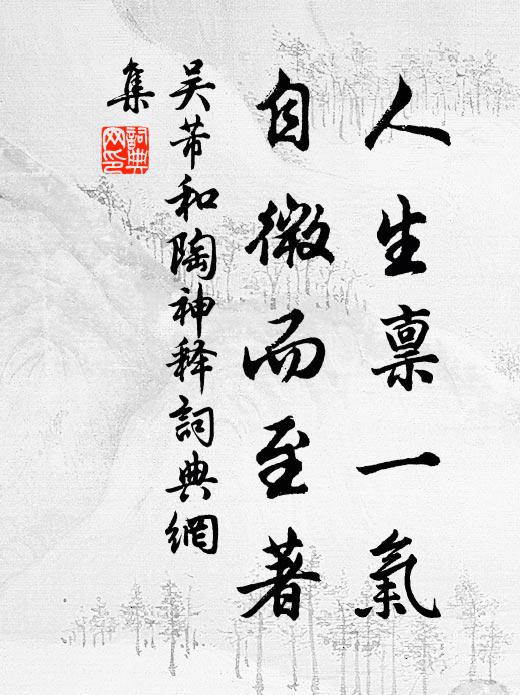 人生禀一氣
自微而至著
吴芾和陶神释詞典網
集
詞典
网印